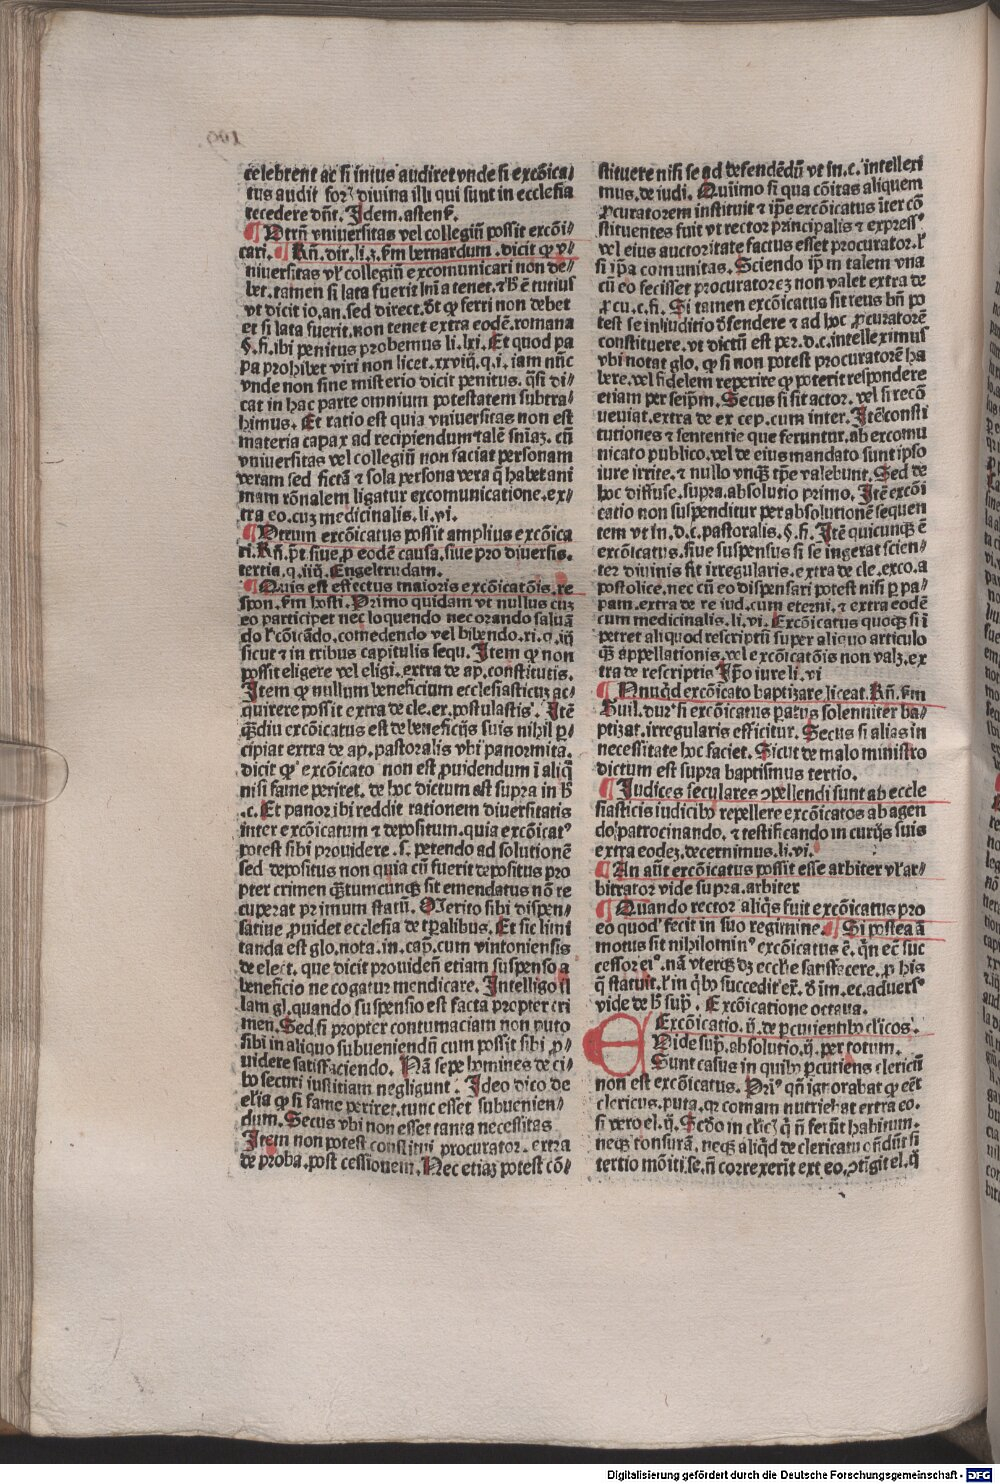 celebrent ac si intus audiret vnde si excõica/
tus audit foꝛꝭ diuina illi qui sunt in ecclesia
recedere dñt. Idem. astenſ.
¶ Vtrũ vniuersitas vel collegiũ possit excõi/
cari. ¶ Rñ. dir. li. ʒ. ẜm bernardum. dicit ꝙ v/
niuersitas vł collegiũ excomunicari non de/
bet. tamen si lata fuerit s̃nia tenet. ⁊ ħ ẽ tutius
vt dicit io. an. sed direct. dt̃ ꝙ ferri non debet
et si lata fuerit. non tenet extra eodẽ. romana
§. fi. ibi penitus probemus li. lxi. Et quod pa
pa prohibet viri non licet. xxvii. q. i. iam nũc
vnde non sine misterio dicit penitus. q̃si di/
cat in hac parte omnium potestatem subtra/
himus. Et ratio est quia vniuersitas non est
materia capax ad recipiendum talẽ sniaʒ. cũ
vniuersitas vel collegiũ non faciat personam
veram sed fictã ⁊ sola persona vera q̃ habet ani
mam rõnalem ligatur excomunicatione. ex/
tra eo. cuʒ medicinalis. li. vi.
¶ Vtrum excõicatus possit amplius excõica
ri. Rñ. pt̃ siue ꝓ eodẽ causa. siue pro diuersis.
tertia. q. iiij. Engeltrudam.
¶ Quis est effectus maioris excõicatõis. re
spon. ẜm hosti. Primo quidam vt nullus cuʒ
eo participet nec loquendo nec orando saluã
do ł cõicãdo. comedendo vel bibendo. xi. q. iij
sicut ⁊ in tribus capitulis sequ. Item ꝙ non
possit eligere vel eligi. extra de ap. constitutis.
Item ꝙ nullum beneficium ecclesiasticuʒ ac/
quirere possit extra de cle. ex. postulastis. Itẽ
q̃ʒdiu excõicatus est de beneficijs suis nihil ꝑ/
cipiat extra de ap. pastoralis vbi panormita.
dicit ꝙ excõicato non est ꝓuidendum ĩ aliq̃
nisi fame periret. de hoc dictum est supra in ħ
.c. Et panor. ibi reddit rationem diuersitatis
inter excõicatum ⁊ depositum. quia excõicatꝰ
potest sibi prouidere. s. petendo ad solutionẽ
sed depositus non quia cũ fuerit depositus pro
pter crimen q̃ʒtumcunqʒ sit emendatus nõ re
cuperat primum statũ. Merito sibi dispen/
satiue ꝓuidet ecclesia de tꝑalibus. Et sic limi
tanda est glo. nota. in cap. cum vintoniensis
de elect. que dicit prouidẽri etiam suspenso a
beneficio ne cogatur mendicare. Intelligo il
lam gl. quando suspensio est facta propter cri
men. Sed si propter contumaciam non puto
sibi in aliquo subueniendũ cum possit sibi ꝓ/
uidere satisfaciendo. Nã sepe homines de ci/
bo securi iustitiam negligunt. Ideo dico de
elia ꝙ si fame periret. tunc esset subuenien/
dum. Secus vbi non esset tanta necessitas
Item non potest constitui procurator. extra
de proba. post cessionem. Nec etiaʒ potest cõ/
stituere nisi se ad defendẽdũ vt in. c. intellexi
mus. de iudi. Quiimo si qua cõitas aliquem
ꝓcuratorem instituit ⁊ ip̃e excõicatus iter cõ
stituentes fuit vt rector principalis ⁊ expressꝰ
vel eius auctoritate factus esset procurator. ł
si ip̃a comunitas. Sciendo ip̃m talem vna
cũ eo fecisset procuratoreʒ non valet extra de
ꝓcu. c. fi. Si tamen excõicatus sit reus bñ po
test se in iuditio defendere ⁊ ad hoc ꝓcuratorẽ
constituere. vt dictũ est per. d. c. intelleximus
vbi notat glo. ꝙ si non potest procuratorẽ ha
bere. vel fidelem reperire ꝙ poterit respondere
etiam per seip̃m. Secus si sit actor. vel si recõ
ueniat. extra de excep. cum inter. Itẽ consti
tutiones ⁊ sententie que feruntur. ab excomu
nicato publico. vel de eius mandato sunt ipso
iure irrite. ⁊ nullo vnqʒ tp̃e valebunt. Sed de
hoc diffuse. supra. absolutio primo. Itẽ excõi
catio non suspenditur per absolutionẽ sequen
tem vt in. d. c. pastoralis. §. fi. Itẽ quicunqʒ ẽ
excõicatus. siue suspensus si se ingerat scien/
ter diuinis fit irregularis. extra de cle. exco. a
postolice. nec cũ eo dispensari potest nisi ꝑ pa/
pam. extra de re iud. cum eterni. ⁊ extra eodẽ
cum medicinalis. li. vi. Excõicatus quoqʒ si ĩ
petret aliquod rescriptũ super aliquo articulo
q̃ʒ appellationis. vel excõicatõis non valʒ. ex
tra de rescriptis Ip̃o iure li. vi
¶ Nnuq̃d excõicato baptizare liceat. Rñ. ẜm
Guil. durꝭ si excõicatus paratus solenniter ba/
ptizat. irregularis efficitur. Secus si alias in
necessitate hoc faciet. Sicut de malo ministro
dictum est supra baptismus tertio.
¶ Iudices seculares ↄpellendi sunt ab eccle
siasticis iudicibꝰ repellere excõicatos ab agen
do patrocinando. ⁊ testificando in curijs suis
extra eodeʒ. decernimus. li. vi.
¶ An aũt excõicatus possit esse arbiter vł ar/
bitrator vide supra. arbiter
¶ Quando rector aliq̃s fuit excõicatus pro
eo quod fecit in suo regimine. ¶ Si postea ã
motus sit nihilominꝰ excõicatus ẽ. q̃n ec̃ suc
cessor eiꝰ. nã vterqʒ dʒ ecclie satisfacere. ꝑ his
q̃ statuit. ł in q̃bꝰ succedit eꝛ̃. d̃ im. ec. aduersꝰ
vide de ħ sup̃. Excõicatione octaua.
Excõicatio. ij. de ꝑcutientibꝰ cl̃icos.
Vide sup̃. absolutio. ij. per totum.
Sunt casus in quibꝰ ꝑcutiens clericũ
non est excõicatus. Priꝰ qñ ignorabat ꝙ eẽt
clericus. puta. qꝛ comam nutriebat extra eo.
si vero el. ij. Scd̃o in cl̃icꝭ q̃ ñ ferũt habitum.
neqʒ tonsurã. neqʒ aliq̃d de clericatu oñdũt si
tertio mõiti. se. ñ correxerit ext̃ eo. ↄtĩgit el. ij
Digitalisierung gefördert durch die Deutsche Forschungsgemeinschaft - DFG